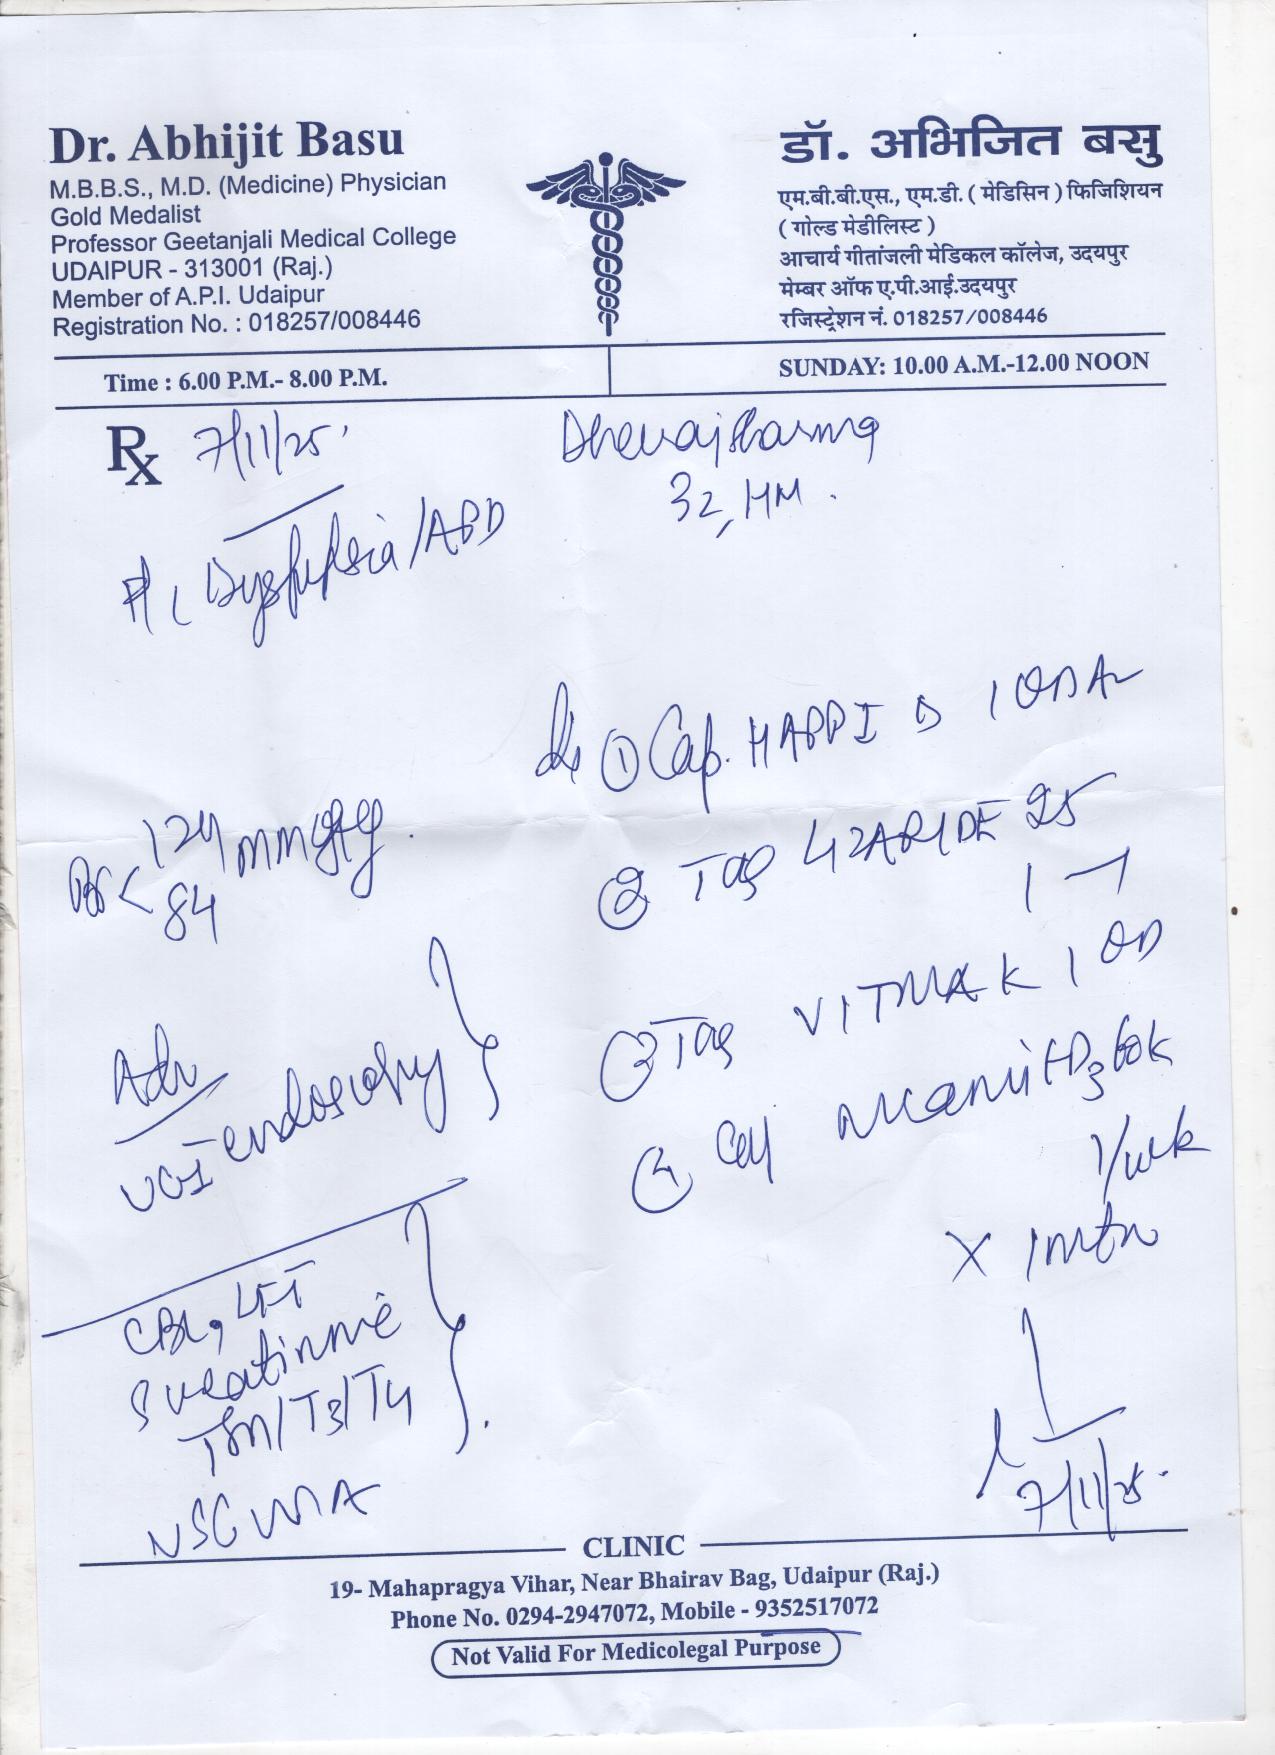 Dr. Abhijit Basu
M.B.B.S., M.D. (Medicine) Physician
Gold Medalist
Professor Geetanjali Medical College
UDAIPUR - 313001 (Raj.)
Member of A.P.I. Udaipur
Registration No. : 018257/008446
डॉ. अभिजित बसु
एम.बी.बी.एस., एम.डी. ( मेडिसिन ) फिजिशियन
( गोल्ड मेडीलिस्ट )
आचार्य गीतांजली मेडिकल कॉलेज, उदयपुर
मेम्बर ऑफ ए.पी.आई.उदयपुर
रजिस्ट्रेशन नं. 018257/008446
Time : 6.00 P.M.- 8.00 P.M.
SUNDAY: 10.00 A.M.-12.00 NOON
Rx 7/11/25
32, HM.
Dyspepsia/APD
① Cap. HAPPI D 1 OD
124 mmHg
84
② Tab 25
1 - 1
③ Tab 1 OD
Adv
UGI endoscopy
④ D3 60k
1/wk
X 1 mth
LFT
S creatinine
TSH/T3/T4
7/11/25.
CLINIC
19- Mahapragya Vihar, Near Bhairav Bag, Udaipur (Raj.)
Phone No. 0294-2947072, Mobile - 9352517072
Not Valid For Medicolegal Purpose